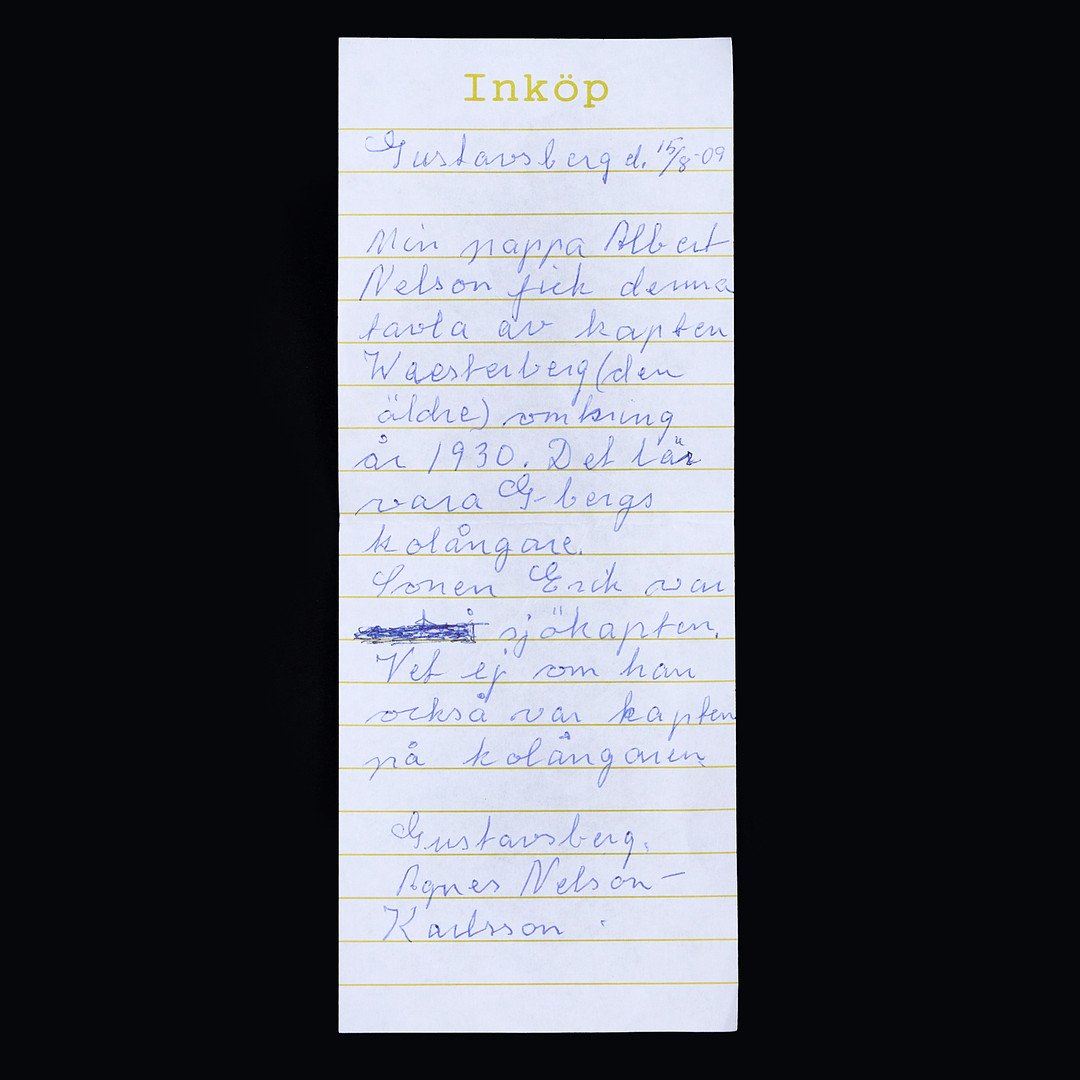 Inköp
Gustavsberg d. 15/8-09
Min pappa Albert
Nelson fick denna
tavla av kapten
Waesterberg (den
äldre) omkring
år 1930. Det lär
vara G-bergs
kolångare.
Sonen Erik var
sjökapten.
Vet ej om han
också var kapten
på kolångaren
Gustavsberg.
Agnes Nelson-
Karlsson.